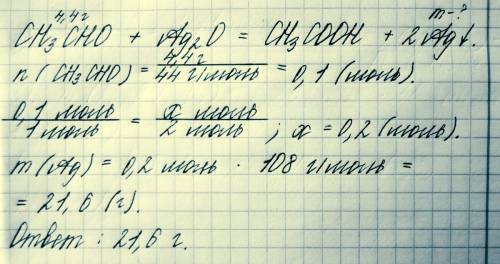 4,4г m-?
CH₃CHO + Ag₂O = CH₃COOH + 2Ag↓.
n(CH₃CHO) = 4,4г / 44 г/моль = 0,1 (моль).
0,1 моль / 1 моль = x моль / 2 моль ; x = 0,2 (моль).
m(Ag) = 0,2 моль · 108 г/моль =
= 21,6 (г).
Ответ: 21,6 г.